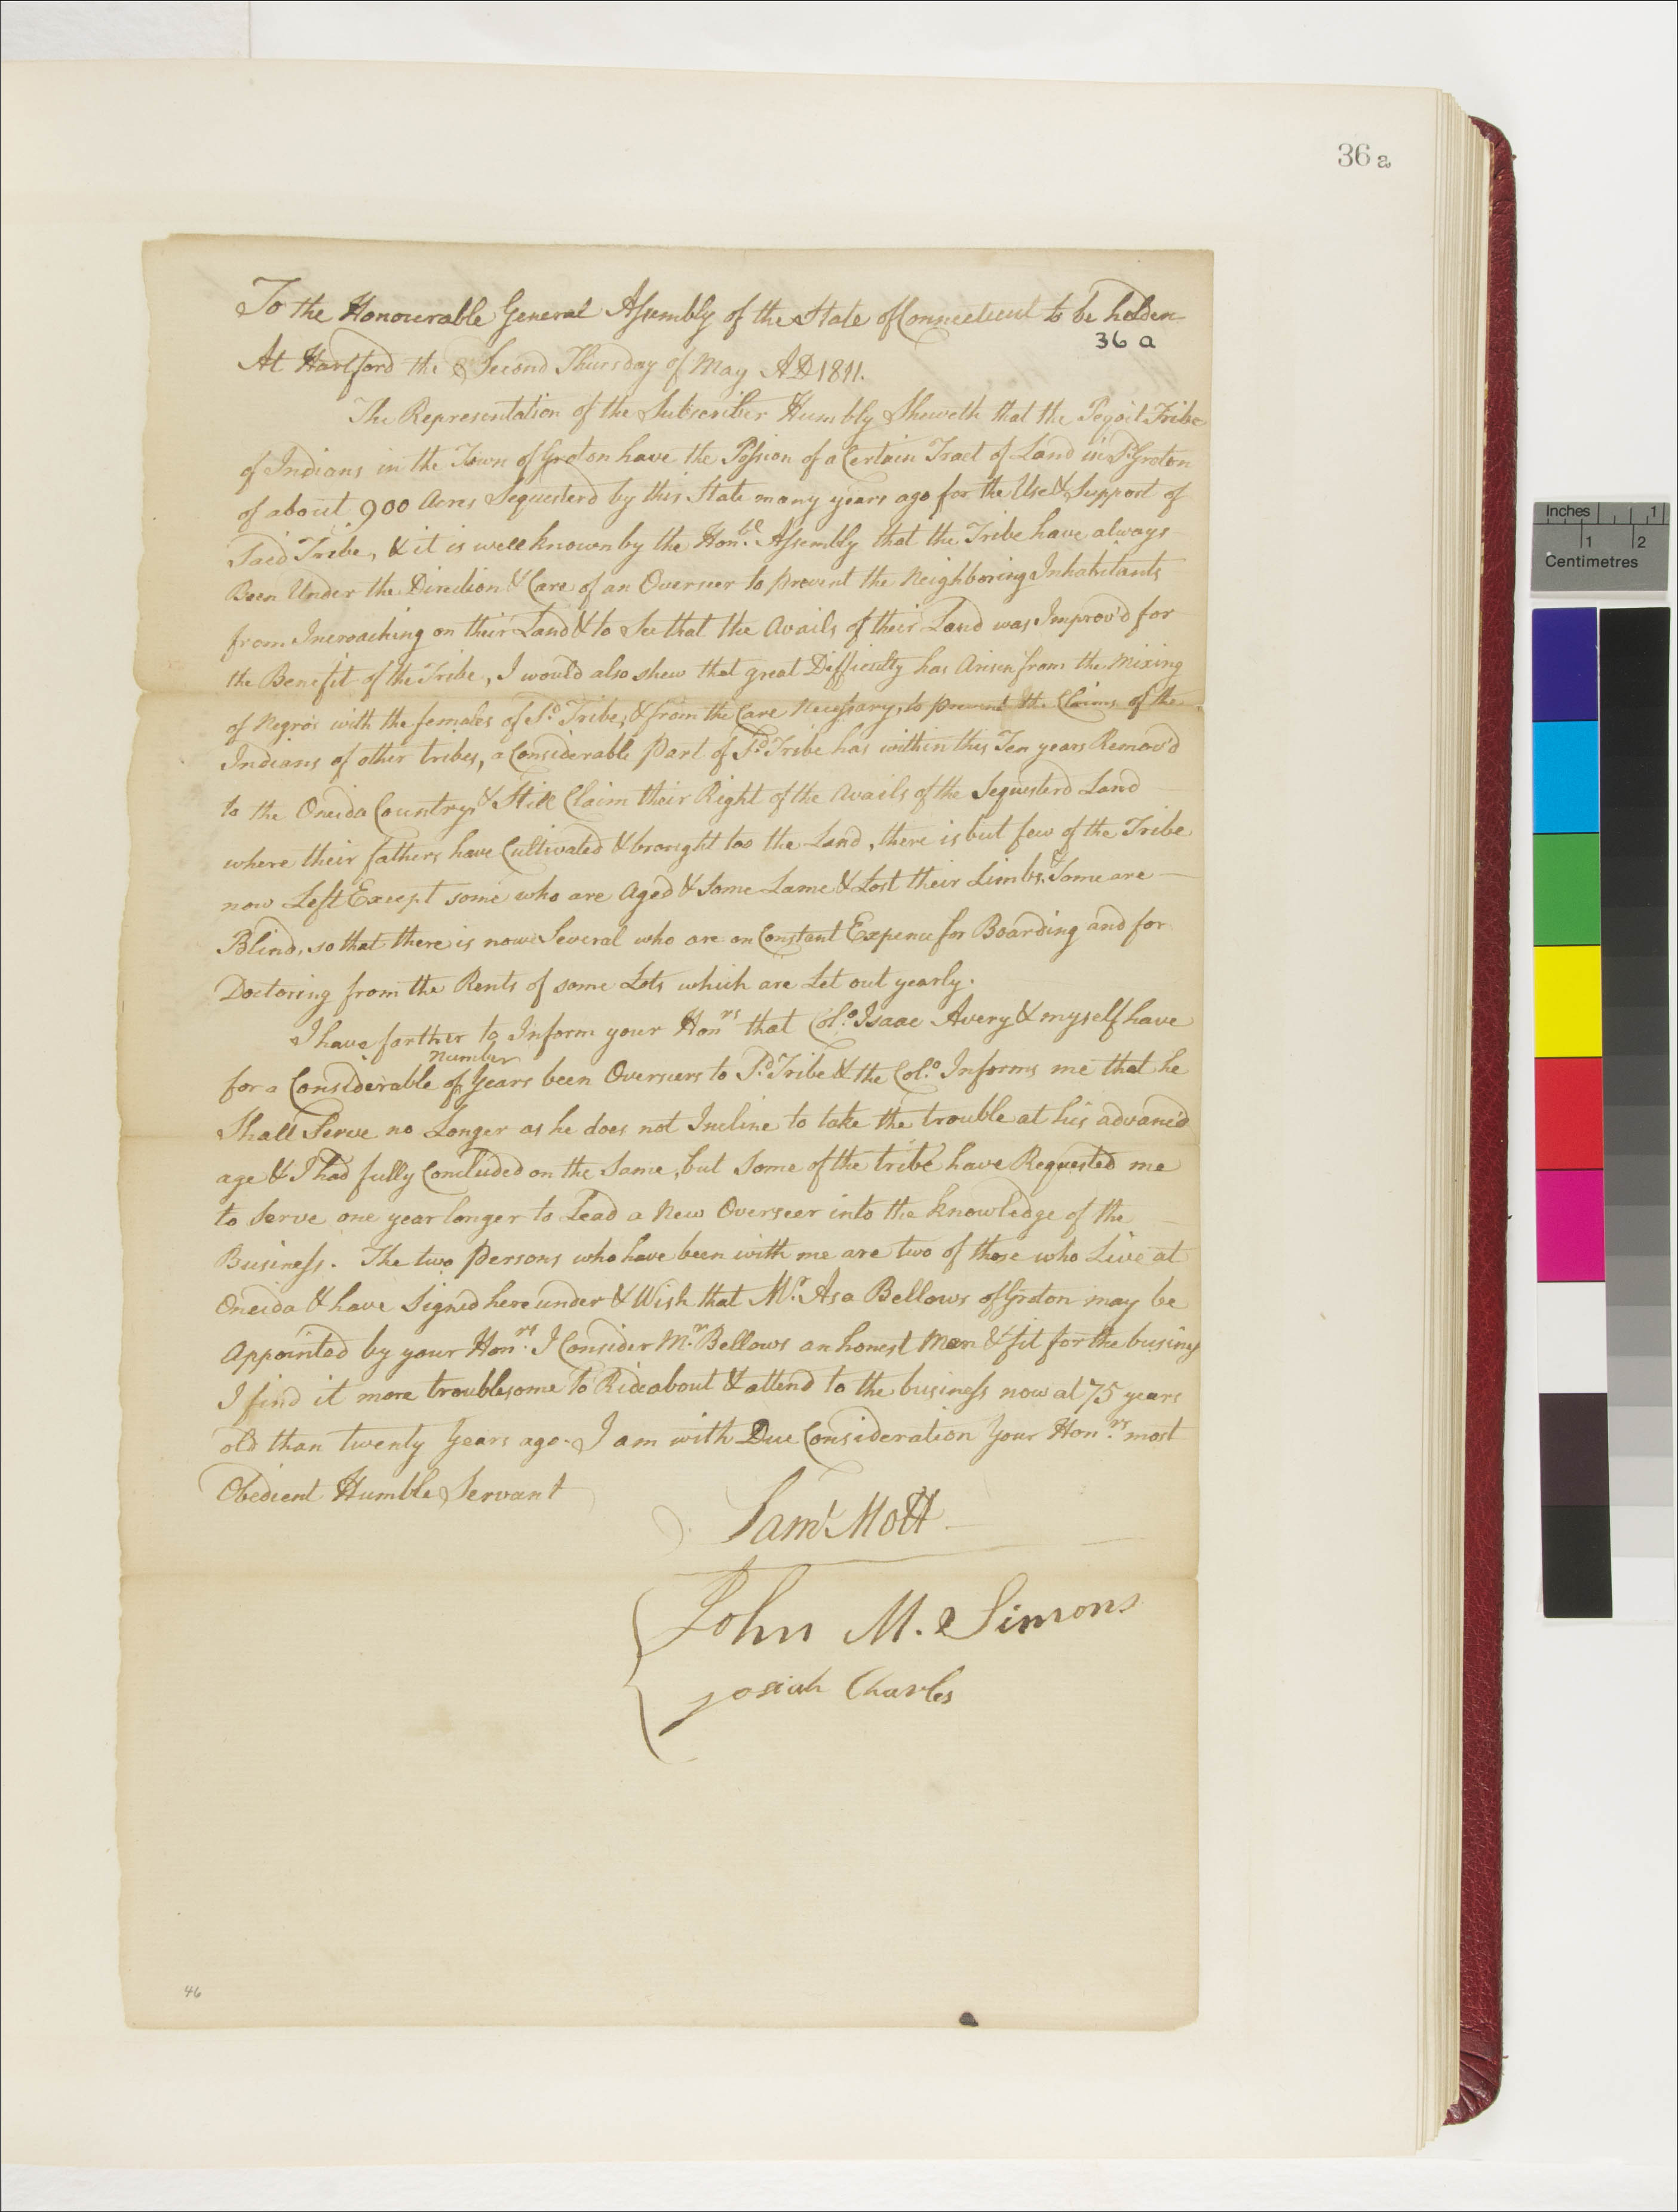 36 a
To the Honourable General Assembly of the State of Connecticut to be holden
36 a
At Hartford the Second Thursday of May AD 1811.
The Representation of the Subscriber Humbly Sheweth that the Peqoit Tribe
of Indians in the Town of Groton have the Possion of a Certain Tract of Land in Sd Groton
of about 900 Acres Sequesterd by this State many years ago for the Use & Support of
Said Tribe, & it is well known by the Honble Assembly that the Tribe have always
Been Under the Direction & Care of an Overseer to prevent the Neighboring Inhabitants
from Incroaching on their Land & to See that the Avails of their Land was Improv'd for
the Benefit of the Tribe, I would also shew that great Difficulty has Arisen from the Mixing
of Negros with the females of Sd Tribe, & from the Care Necessary, to prevent the Claims of the
Indians of other tribes, a Considerable Part of Sd Tribe has within this Ten years Remov'd
to the Oneida Country & Still Claim their Right of the Avails of the Sequesterd Land
where their fathers have Cultivated & brought too the Land, there is but few of the Tribe
now Left Except some who are Aged & some Lame & Lost their Limbs & Some are
Blind, so that there is now Several who are on Constant Expence for Boarding and for
Doctoring from the Rents of some Lots which are Let out yearly.
I have farther to Inform your Honrs that Colo Isaac Avery & myself have
number
for a Considerable of Years been Overseers to Sd Tribe & the Colo Informs me that he
Shall Serve no Longer as he does not Incline to take the trouble at his advanc'd
age & I had fully Concluded on the Same, but Some of the tribe have Requested me
to Serve one year longer to Lead a New Overseer into the knowledge of the
Business. The two Persons who have been with me are two of those who Live at
Oneida & have Signed hereunder & Wish that Mr Asa Bellows of Groton may be
Appointed by your Honrs. I Consider Mr. Bellows an honest Man & fit for the business
I find it more troublesome to Ride about & attend to the business now at 75 years
old than twenty Years ago. I am with Due Consideration Your Honrs most
Obedient Humble Servant
Saml Mott
John M. Simons
Josiah Charles
46
Inches 1
1 2
Centimetres